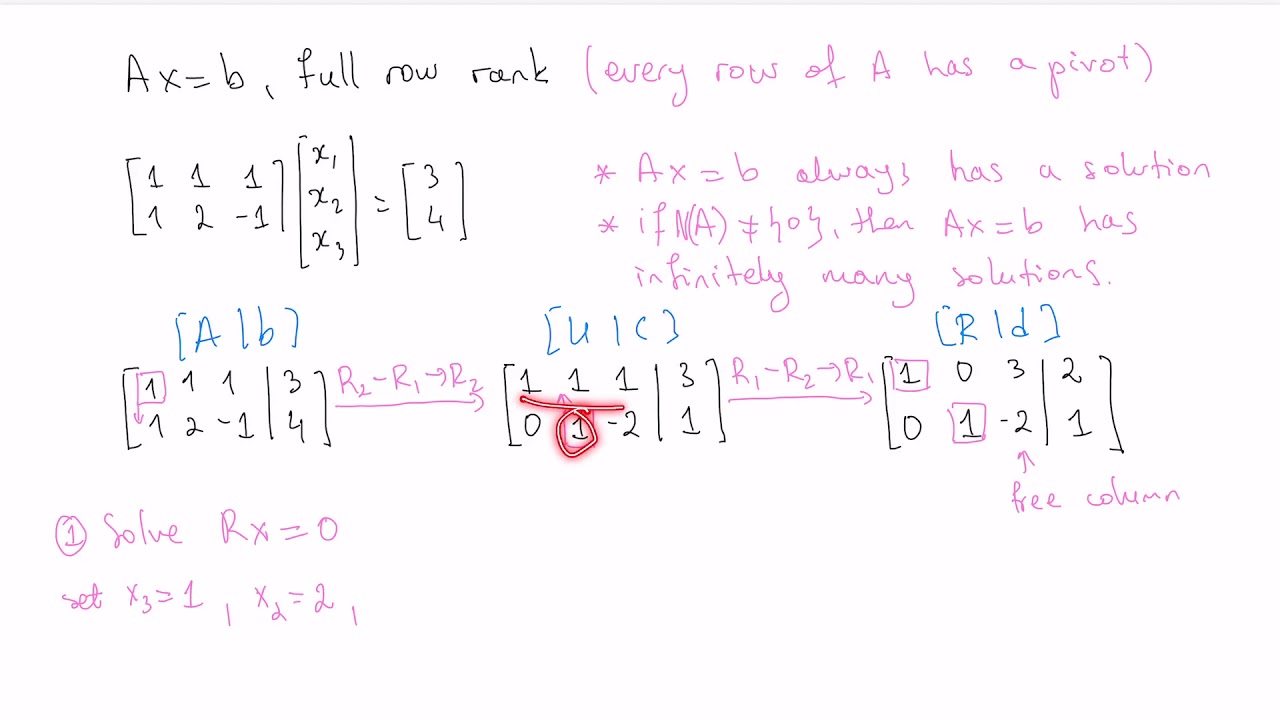 Ax=b, full row rank (every row of A has a pivot)
[1 1 1; 1 2 -1] [x₁; x₂; x₃] = [3; 4]
* Ax=b always has a solution
* if N(A) ≠ {0}, then Ax=b has
infinitely many solutions.
[A|b] [U|C] [R|d]
[1 1 1 | 3; 1 2 -1 | 4] R₂-R₁→R₂ [1 1 1 | 3; 0 1 -2 | 1] R₁-R₂→R₁ [1 0 3 | 2; 0 1 -2 | 1]
↑
free column
① Solve Rx=0
set x₃=1, x₂=2,